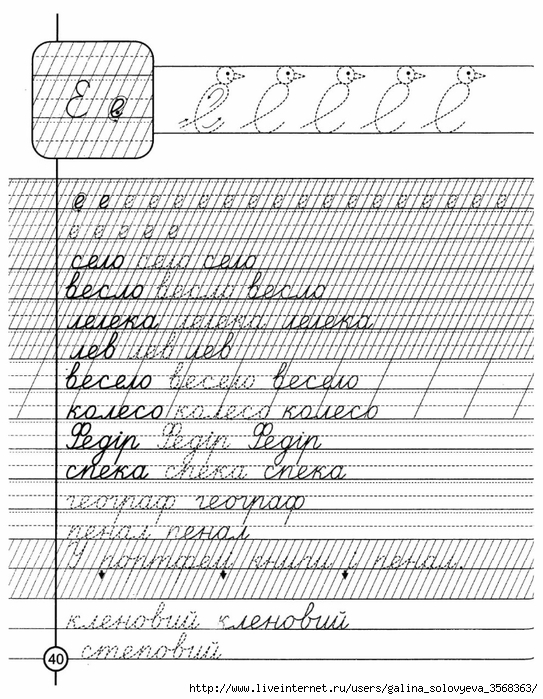 Е е
е е е е е е е е е е е е е е е е е е
е е е е е
село село село
весло весло весло
лелека лелека лелека
лев лев лев
весело весело весело
колесо колесо колесо
Федір Федір Федір
спека спека спека
географ географ
пенал пенал
У портфелі книги і пенал.
кленовий кленовий
степовий
40
http://www.liveinternet.ru/users/galina_solovyeva_3568363/